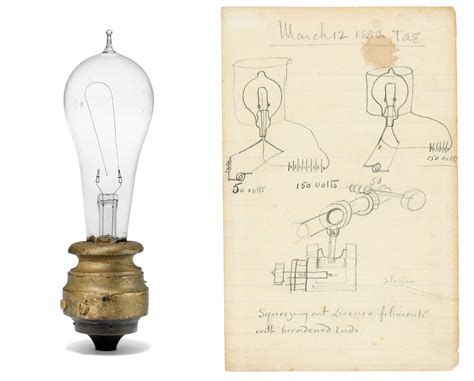 March 12 1886 TAE
50 volts
150 volts
150 volts
Squeezing out filiments
with broadened Ends